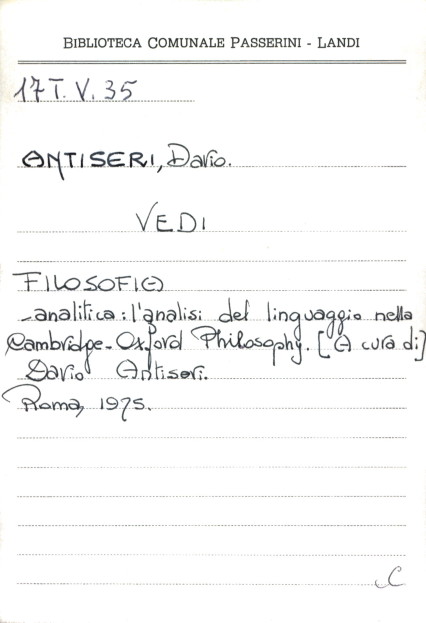 BIBLIOTECA COMUNALE PASSERINI - LANDI
17 T. V. 35
ANTISERI, Dario.
VEDI
FILOSOFIA
analitica: l'analisi del linguaggio nella
Cambridge-Oxford Philosophy. [A cura di]
Dario Antiseri.
Roma, 1975.
C